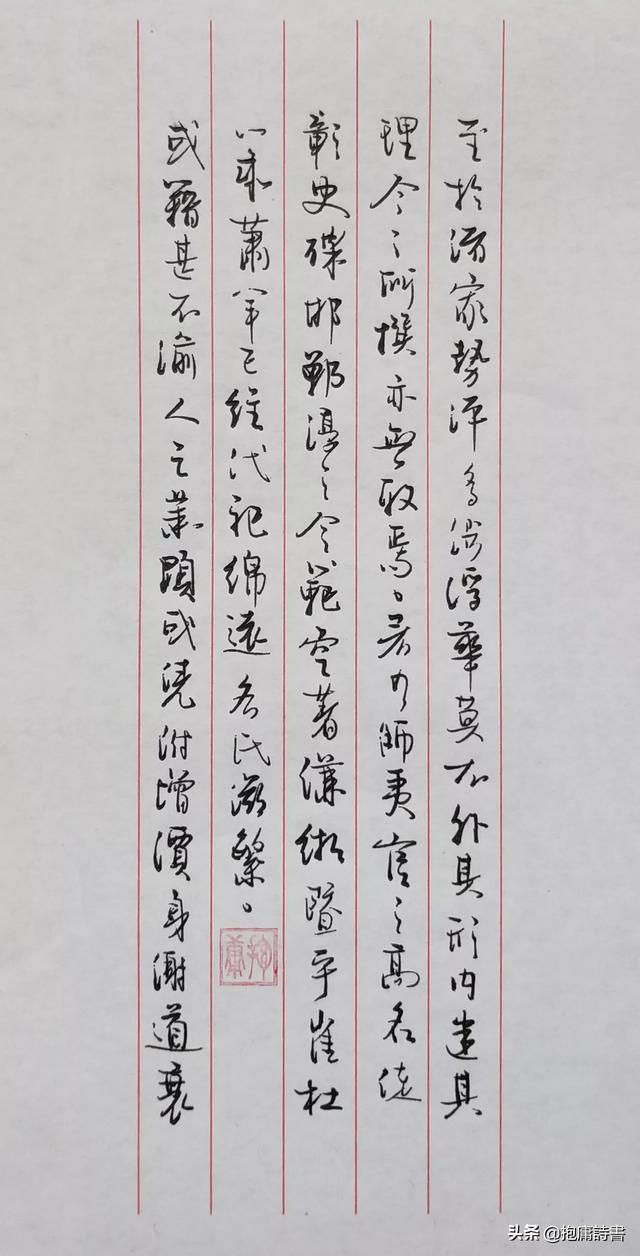 至於諸家勢評多涉浮華莫不外其形内迷其
理今之所撰亦無取焉、若乃師宜官之高名徒
彰史牒邯鄲淳之令範空著縑緗暨乎崔杜
以來蕭羊已往代祀綿遠名氏滋繁、
或藉甚不渝人亡業顯或憑附增價身謝道衰
抱庸
头条 @抱庸詩書